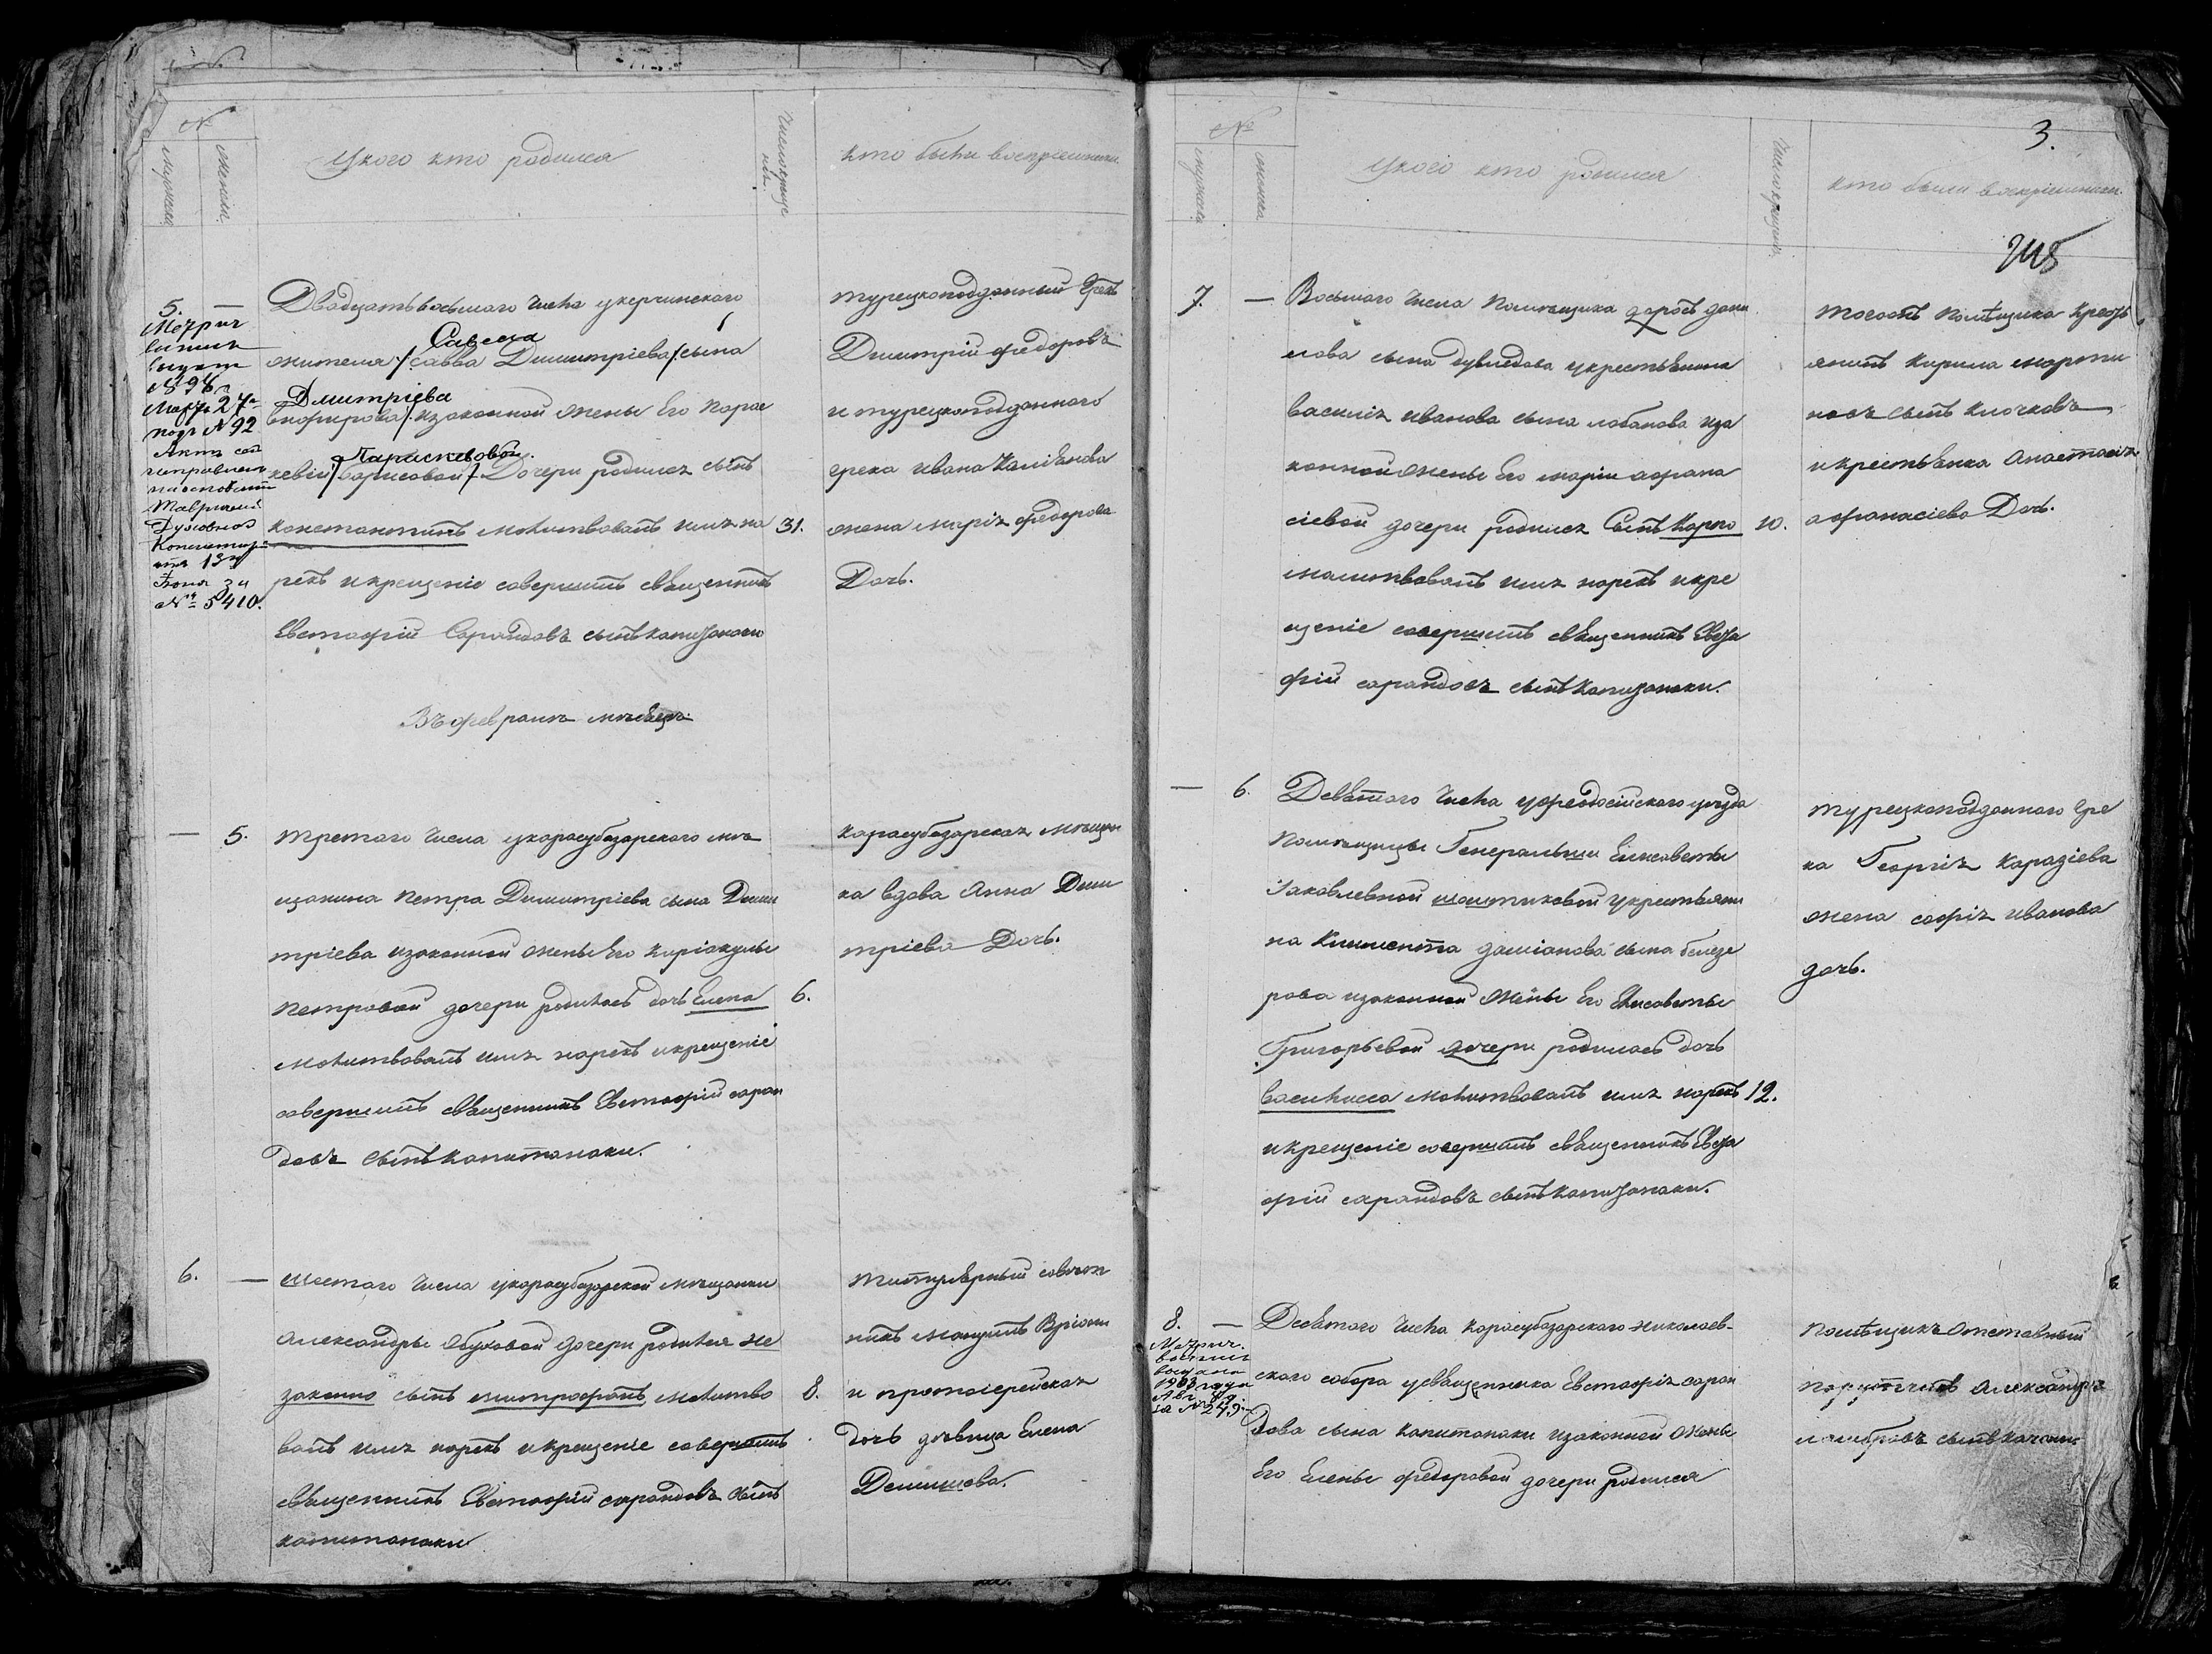 №
мужеска
женска
У кого кто родился
Число крещенія
кто были восприемники
5.
—
Метрич
выпись
выдана
№ 94
Марта 27
подъ № 92
Актъ сей
исправленъ
на основаніи
Таврической
Духовной
Консисторіи
отъ 13
Іюня за
№ 5410.
Двадцать восьмаго числа у керчинскаго
Савелія
жителя /:Савва Димитріева/ сына
Дмитріева
/: из законной жены Его Парас
Параскевовой
кевіи /Борисовой/ Дочери родился сынъ
константинъ молитвовалъ имя на
31.
рекъ и крещеніе совершилъ священникъ
Евстафій Сарандовъ сынъ капитанаки
турецкоподданный Грекъ
Димитрій Федоровъ
и турецкоподданного
грека Ивана
жена Марія Федорова
Дочь.
Въ февралѣ мѣсяцѣ
—
5.
третаго числа у карасубазарскаго мѣ
щанина Петра Димитріева сына Дими
тріева из законной жены Его Киріакулы
Петровой дочери родилась дочь Елена
6.
молитвовалъ имя нарекъ и крещеніе
совершилъ священникъ Евстафій саран
довъ сынъ капитанаки.
карасубазарская мѣщан
ка вдова Анна Дими
тріева Дочь.
6.
—
шестаго числа у карасубазарской мѣщанки
Александры Обуховой дочери родился не
законно сынъ митрофанъ молитво
8.
валъ имя нарекъ и крещеніе совершилъ
священникъ Евстафій сарандовъ сынъ
капитанаки
титулярный совѣт
никъ Мануилъ
и протоіерейская
дочь дѣвица Елена
Демишева.
3.
№
мужеска
женска
У кого кто родился
Число крещенія
кто были воспріемники.
7.
—
Восьмаго числа помѣщика дани
лова сына у крестьянина
василія Иванова сына лобанова иза
конной жены Его маріи афана
сіевой дочери родился Сынъ Карпъ
10.
молитвовалъ имя нарекъ и кре
щеніе совершилъ священникъ Евста
фій сарандовъ сынъ капитанаки.
тогожъ помѣщика Кресть
янинъ Кирила марти
новъ сынъ клочковъ
и крестьянка Анастасія
афанасіева Дочь.
—
6.
Девятаго числа у феодосійскаго уѣзда
помѣщицы Генеральши Елисаветы
Іаковлевной у крестьяни
на Климента даміанова сына
рова из законной жены Его Елисаветы
Григорьевой дочери родилась дочь
василисса молитвовалъ имя нарекъ
12.
и крещеніе совершилъ священникъ Евста
фій сарандовъ сынъ капитанаки.
турецкоподданного Гре
ка Георгія Карадіева
жена софія иванова
дочь.
8.
—
Метрич.
выпись
выдана
1903 года
Авг. 49
за № 249.
Десятаго числа карасубазарскаго николаев-
скаго собора у священника Евстафія саран
дова сына капитанаки из законной жены
Его Елены федоровой дочери родился
помѣщикъ отставный
порутчикъ Александръ
сынъ